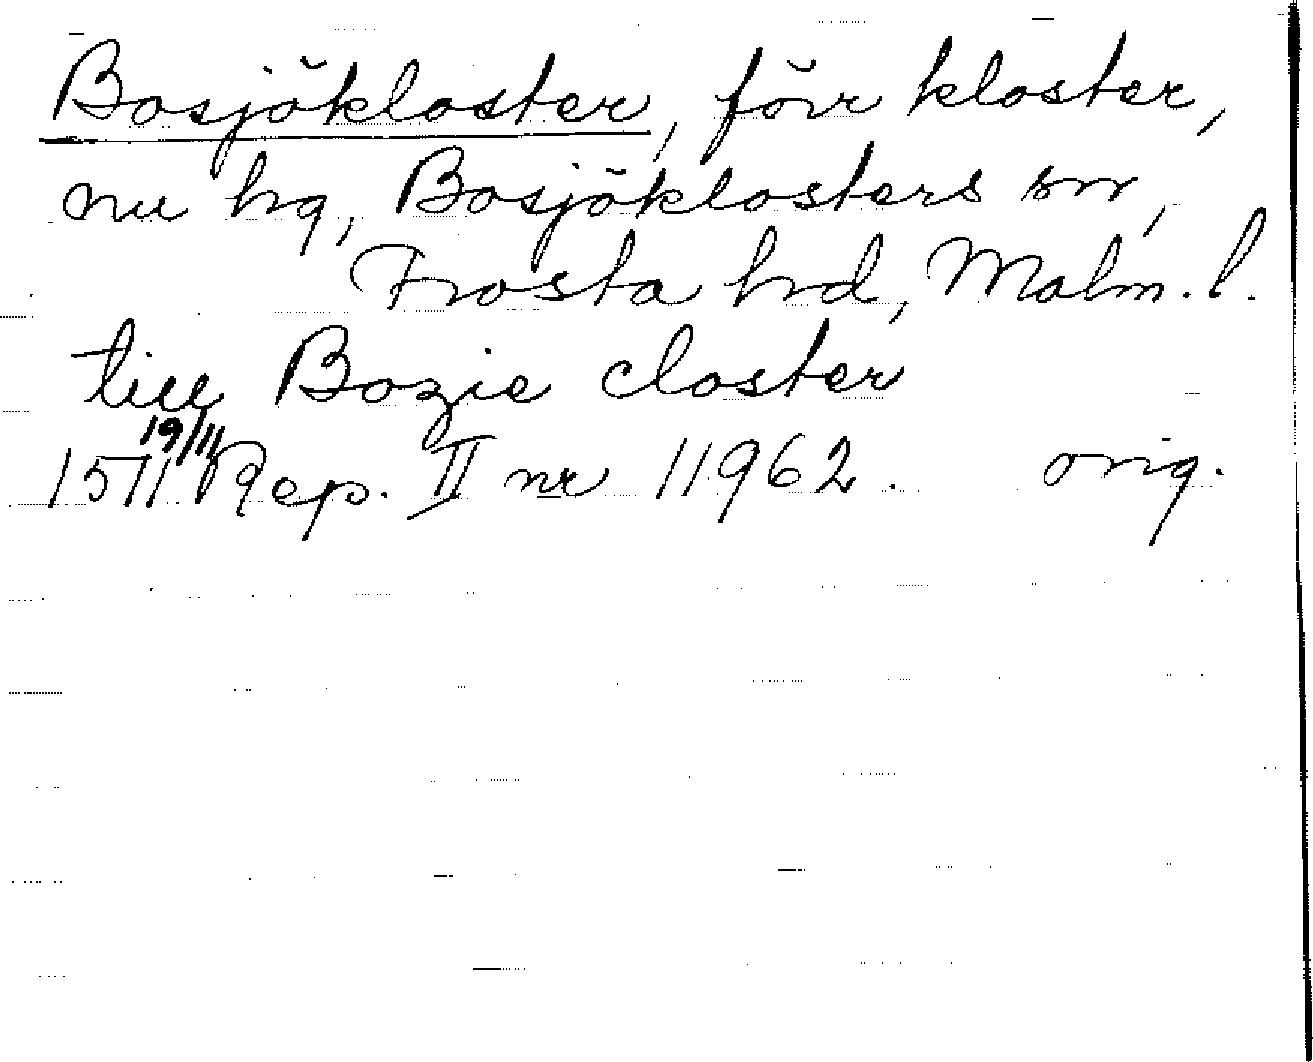 Bosjökloster, förr kloster,
nu hg, Bosjöklosters sn,
Frosta hd, Malm. l.
till Bozie closter
19/11
1511 Rep. II nr 11962. orig.